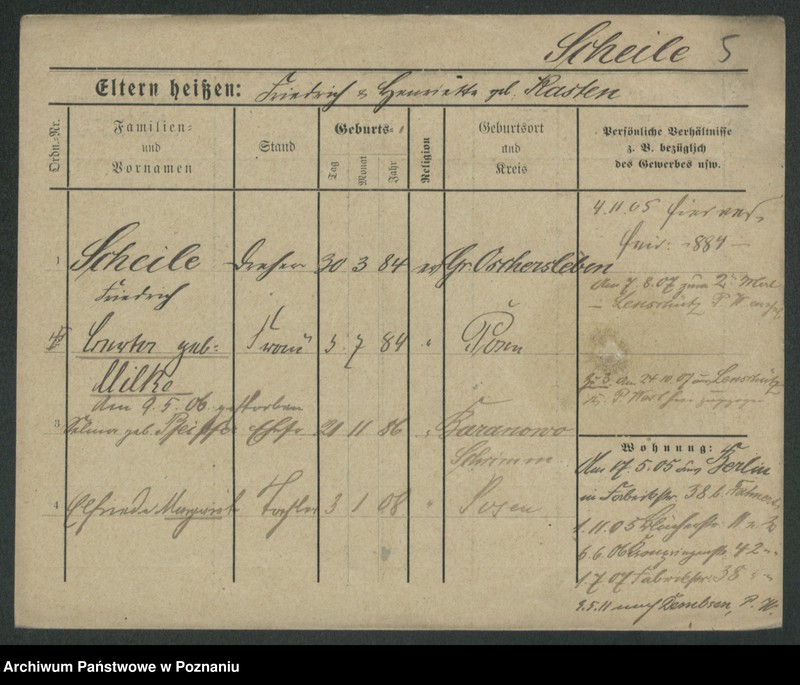 Scheile 5
Eltern heißen: Friedrich & Henriette geb. Kasten
Ordn.-Nr.
Familien- und Vornamen
Stand
Geburts-
Tag
Monat
Jahr
Religion
Geburtsort und Kreis
Persönliche Verhältnisse
z. B. bezüglich
des Gewerbes usw.
4.11.05
1884
1 Scheile Dreher 30 3 84 ev Gr. Oschersleben
Friedrich
Am 7.8.07 zum 2. Mal
geb. Frau 5 7 84 " Posen
Milke
am 9.5.06 gestorben
am 24.10.07
3 Selma geb. Ehefr 21 11 86 " Baranowo
Schrimm
4 Elfriede Margarete Tochter 3 1 08 " Posen
Wohnung:
Am 17.5.05 aus Berlin
in Fabrikstr. 38 b.
1.11.05 11
6.6.06 42
1.7.07 Fabrikstr. 38
9.5.11 nach Dembsen, P. W.
Archiwum Państwowe w Poznaniu